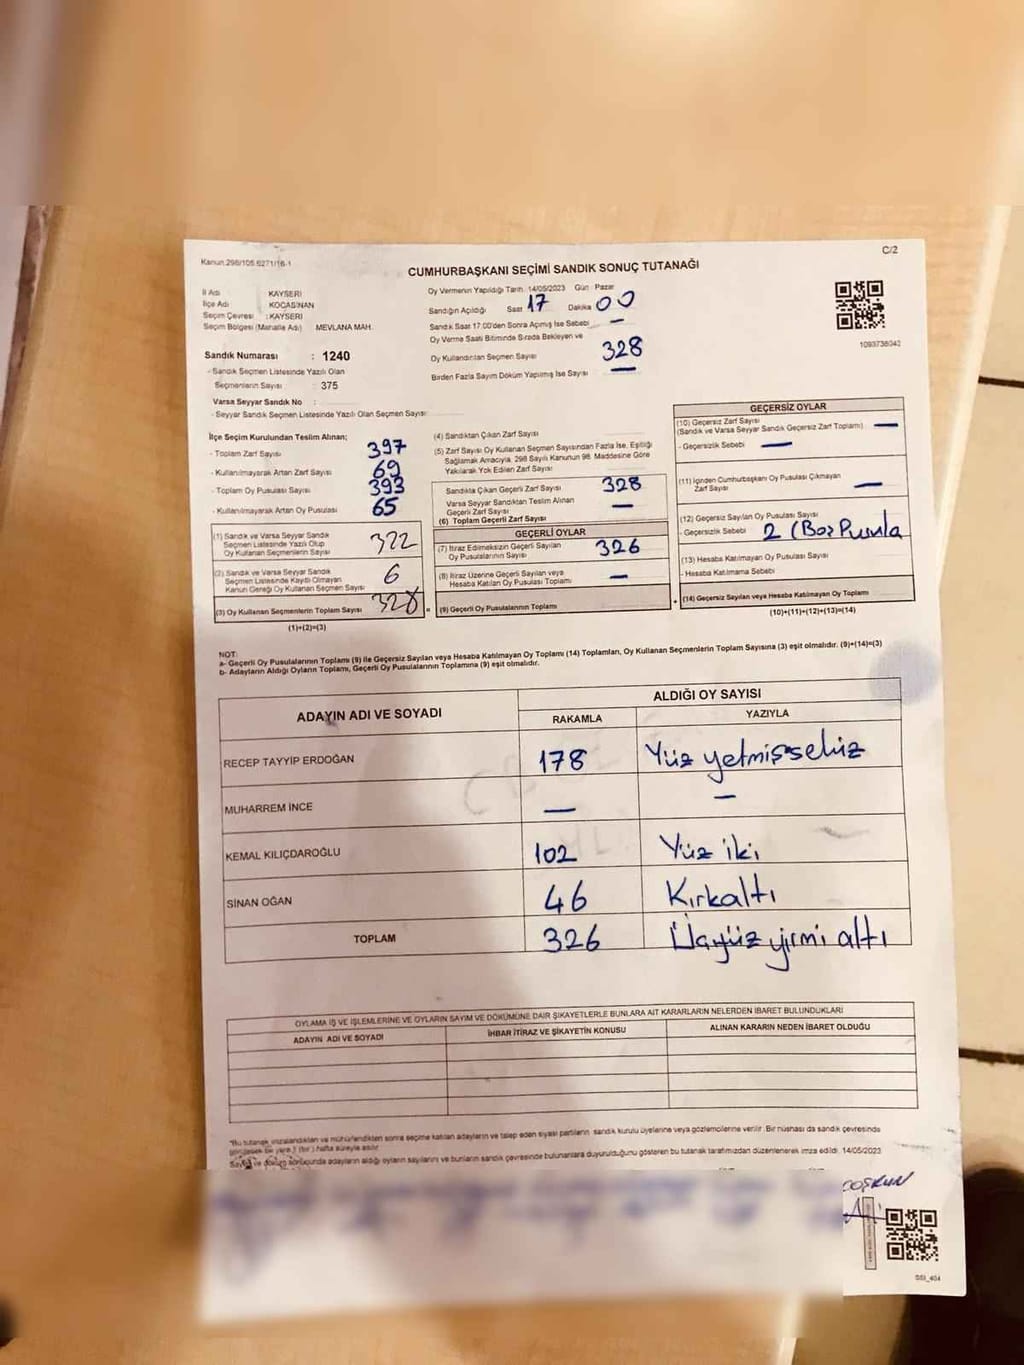 Kanun.298/105.6271/16-1
C/2
CUMHURBAŞKANI SEÇİMİ SANDIK SONUÇ TUTANAĞI
İl Adı KAYSERİ
İlçe Adı KOCASİNAN
Seçim Çevresi : KAYSERİ
Seçim Bölgesi (Mahalle Adı) MEVLANA MAH.
Sandık Numarası : 1240
- Sandık Seçmen Listesinde Yazılı Olan
Seçmenlerin Sayısı : 375
Varsa Seyyar Sandık No :
- Seyyar Sandık Seçmen Listesinde Yazılı Olan Seçmen Sayısı
Oy Vermenin Yapıldığı Tarih 14/05/2023 Gün Pazar
Sandığın Açıldığı Saat 17 Dakika 00
Sandık Saat 17.00'den Sonra Açımış İse Sebebi –
Oy Verme Saati Bitiminde Sırada Bekleyen ve
Oy Kullandırılan Seçmen Sayısı 328
Birden Fazla Sayım Döküm Yapılmış İse Sayısı –
1093738043
İlçe Seçim Kurulundan Teslim Alınan;
- Toplam Zarf Sayısı 397
- Kullanılmayarak Artan Zarf Sayısı 69
- Toplam Oy Pusulası Sayısı 393
- Kullanılmayarak Artan Oy Pusulası 65
(1) Sandık ve Varsa Seyyar Sandık
Seçmen Listesinde Yazılı Olup
Oy Kullanan Seçmenlerin Sayısı 322
(2) Sandık ve Varsa Seyyar Sandık
Seçmen Listesinde Kaydı Olmayan
Kanun Gereği Oy Kullanan Seçmen Sayısı 6
(3) Oy Kullanan Seçmenlerin Toplam Sayısı 328
(1)+(2)=(3)
(4) Sandıktan Çıkan Zarf Sayısı
(5) Zarf Sayısı Oy Kullanan Seçmen Sayısından Fazla İse, Eşitliği
Sağlamak Amacıyla, 298 Sayılı Kanunun 98. Maddesine Göre
Yakılarak Yok Edilen Zarf Sayısı
Sandıkta Çıkan Geçerli Zarf Sayısı 328
Varsa Seyyar Sandıktan Teslim Alınan
Geçerli Zarf Sayısı –
(6) Toplam Geçerli Zarf Sayısı
GEÇERLİ OYLAR
(7) İtiraz Edilmeksizin Geçerli Sayılan
Oy Pusulalarının Sayısı 326
(8) İtiraz Üzerine Geçerli Sayılan veya
Hesaba Katılan Oy Pusulası Toplamı –
= (9) Geçerli Oy Pusulalarının Toplamı
GEÇERSİZ OYLAR
(10) Geçersiz Zarf Sayısı
(Sandık ve Varsa Seyyar Sandık Geçersiz Zarf Toplamı) –
- Geçersizlik Sebebi –
(11) İçinden Cumhurbaşkanı Oy Pusulası Çıkmayan
Zarf Sayısı –
(12) Geçersiz Sayılan Oy Pusulası Sayısı
- Geçersizlik Sebebi 2 (Boş Pusula
(13) Hesaba Katılmayan Oy Pusulası Sayısı
- Hesaba Katılmama Sebebi
+ (14) Geçersiz Sayılan veya Hesaba Katılmayan Oy Toplamı
(10)+(11)+(12)+(13)=(14)
NOT:
a- Geçerli Oy Pusulalarının Toplamı (9) ile Geçersiz Sayılan veya Hesaba Katılmayan Oy Toplamı (14) Toplamları, Oy Kullanan Seçmenlerin Toplam Sayısına (3) eşit olmalıdır. (9)+(14)=(3)
b- Adayların Aldığı Oyların Toplamı, Geçerli Oy Pusulalarının Toplamına (9) eşit olmalıdır.
ADAYIN ADI VE SOYADI
ALDIĞI OY SAYISI
RAKAMLA YAZIYLA
RECEP TAYYİP ERDOĞAN 178 Yüz yetmişsekiz
MUHARREM İNCE – –
KEMAL KILIÇDAROĞLU 102 Yüz iki
SİNAN OĞAN 46 Kırkaltı
TOPLAM 326 Üçyüz yirmi altı
OYLAMA İŞ VE İŞLEMLERİNE VE OYLARIN SAYIM VE DÖKÜMÜNE DAİR ŞİKAYETLERLE BUNLARA AİT KARARLARIN NELERDEN İBARET BULUNDUKLARI
ADAYIN ADI VE SOYADI İHBAR İTİRAZ VE ŞİKAYETİN KONUSU ALINAN KARARIN NEDEN İBARET OLDUĞU
*Bu tutanak imzalandıktan ve mühürlendikten sonra seçime katılan adayların ve talep eden siyasi partilerin sandık kurulu üyelerine veya gözlemcilerine verilir. Bir nüshası da sandık çevresinde
görülecek bir yere 1 (bir) hafta süreyle asılır
Sayım ve döküm sonucunda adayların aldığı oyların sayılarını ve bunların sandık çevresinde bulunanlara duyurulduğunu gösteren bu tutanak tarafımızdan düzenlenerek imza edildi. 14/05/2023
COŞKUN
SSI_404